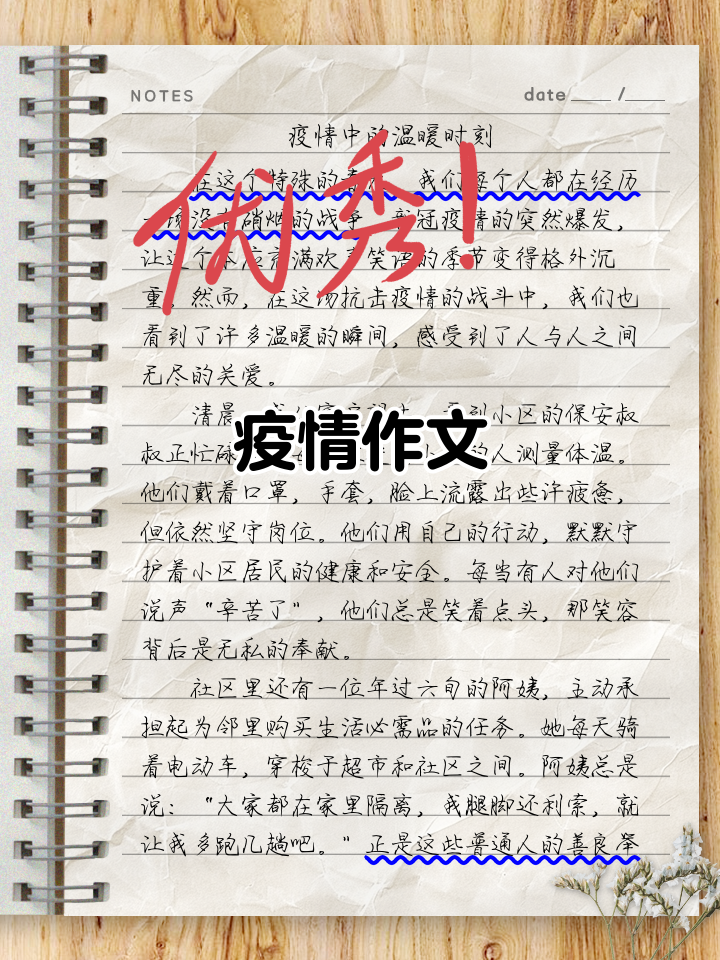 NOTES
date /
疫情中的温暖时刻
优秀!
在这个特殊的 我们每个人都在经历
硝烟的战争 新冠疫情的突然爆发,
让这个本应充满欢声笑语的季节变得格外沉
重。然而,在这场抗击疫情的战斗中,我们也
看到了许多温暖的瞬间,感受到了人与人之间
无尽的关爱。
清晨, 看到小区的保安叔
疫情作文
叔正忙碌 人测量体温。
他们戴着口罩,手套,脸上流露出些许疲惫,
但依然坚守岗位。他们用自己的行动,默默守
护着小区居民的健康和安全。每当有人对他们
说声"辛苦了",他们总是笑着点头,那笑容
背后是无私的奉献。
社区里还有一位年过六旬的阿姨,主动承
担起为邻里购买生活必需品的任务。她每天骑
着电动车,穿梭于超市和社区之间。阿姨总是
说:"大家都在家里隔离,我腿脚还利索,就
让我多跑几趟吧。"正是这些普通人的善良举